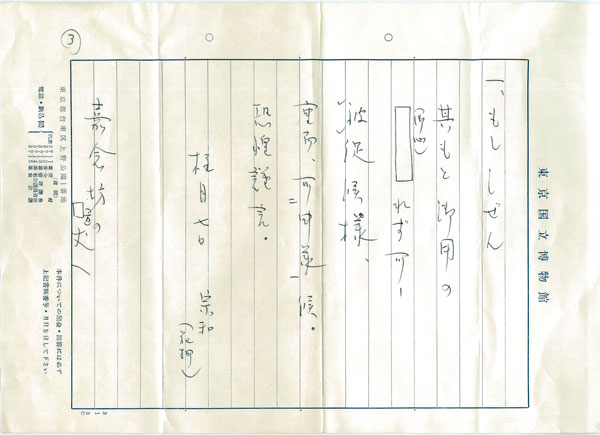 東京国立博物館
一、もししぜん
其もと御用の
れず可
被從候様、
重而、可申義候。
恐惶謹言。
桂月七日 宗和
(花押)
嘉念坊
東京都台東区上野公園1番地
電話・駒込(82)
本件についての照会・回答には必ず
上記書類番号・月日を付して下さい
③